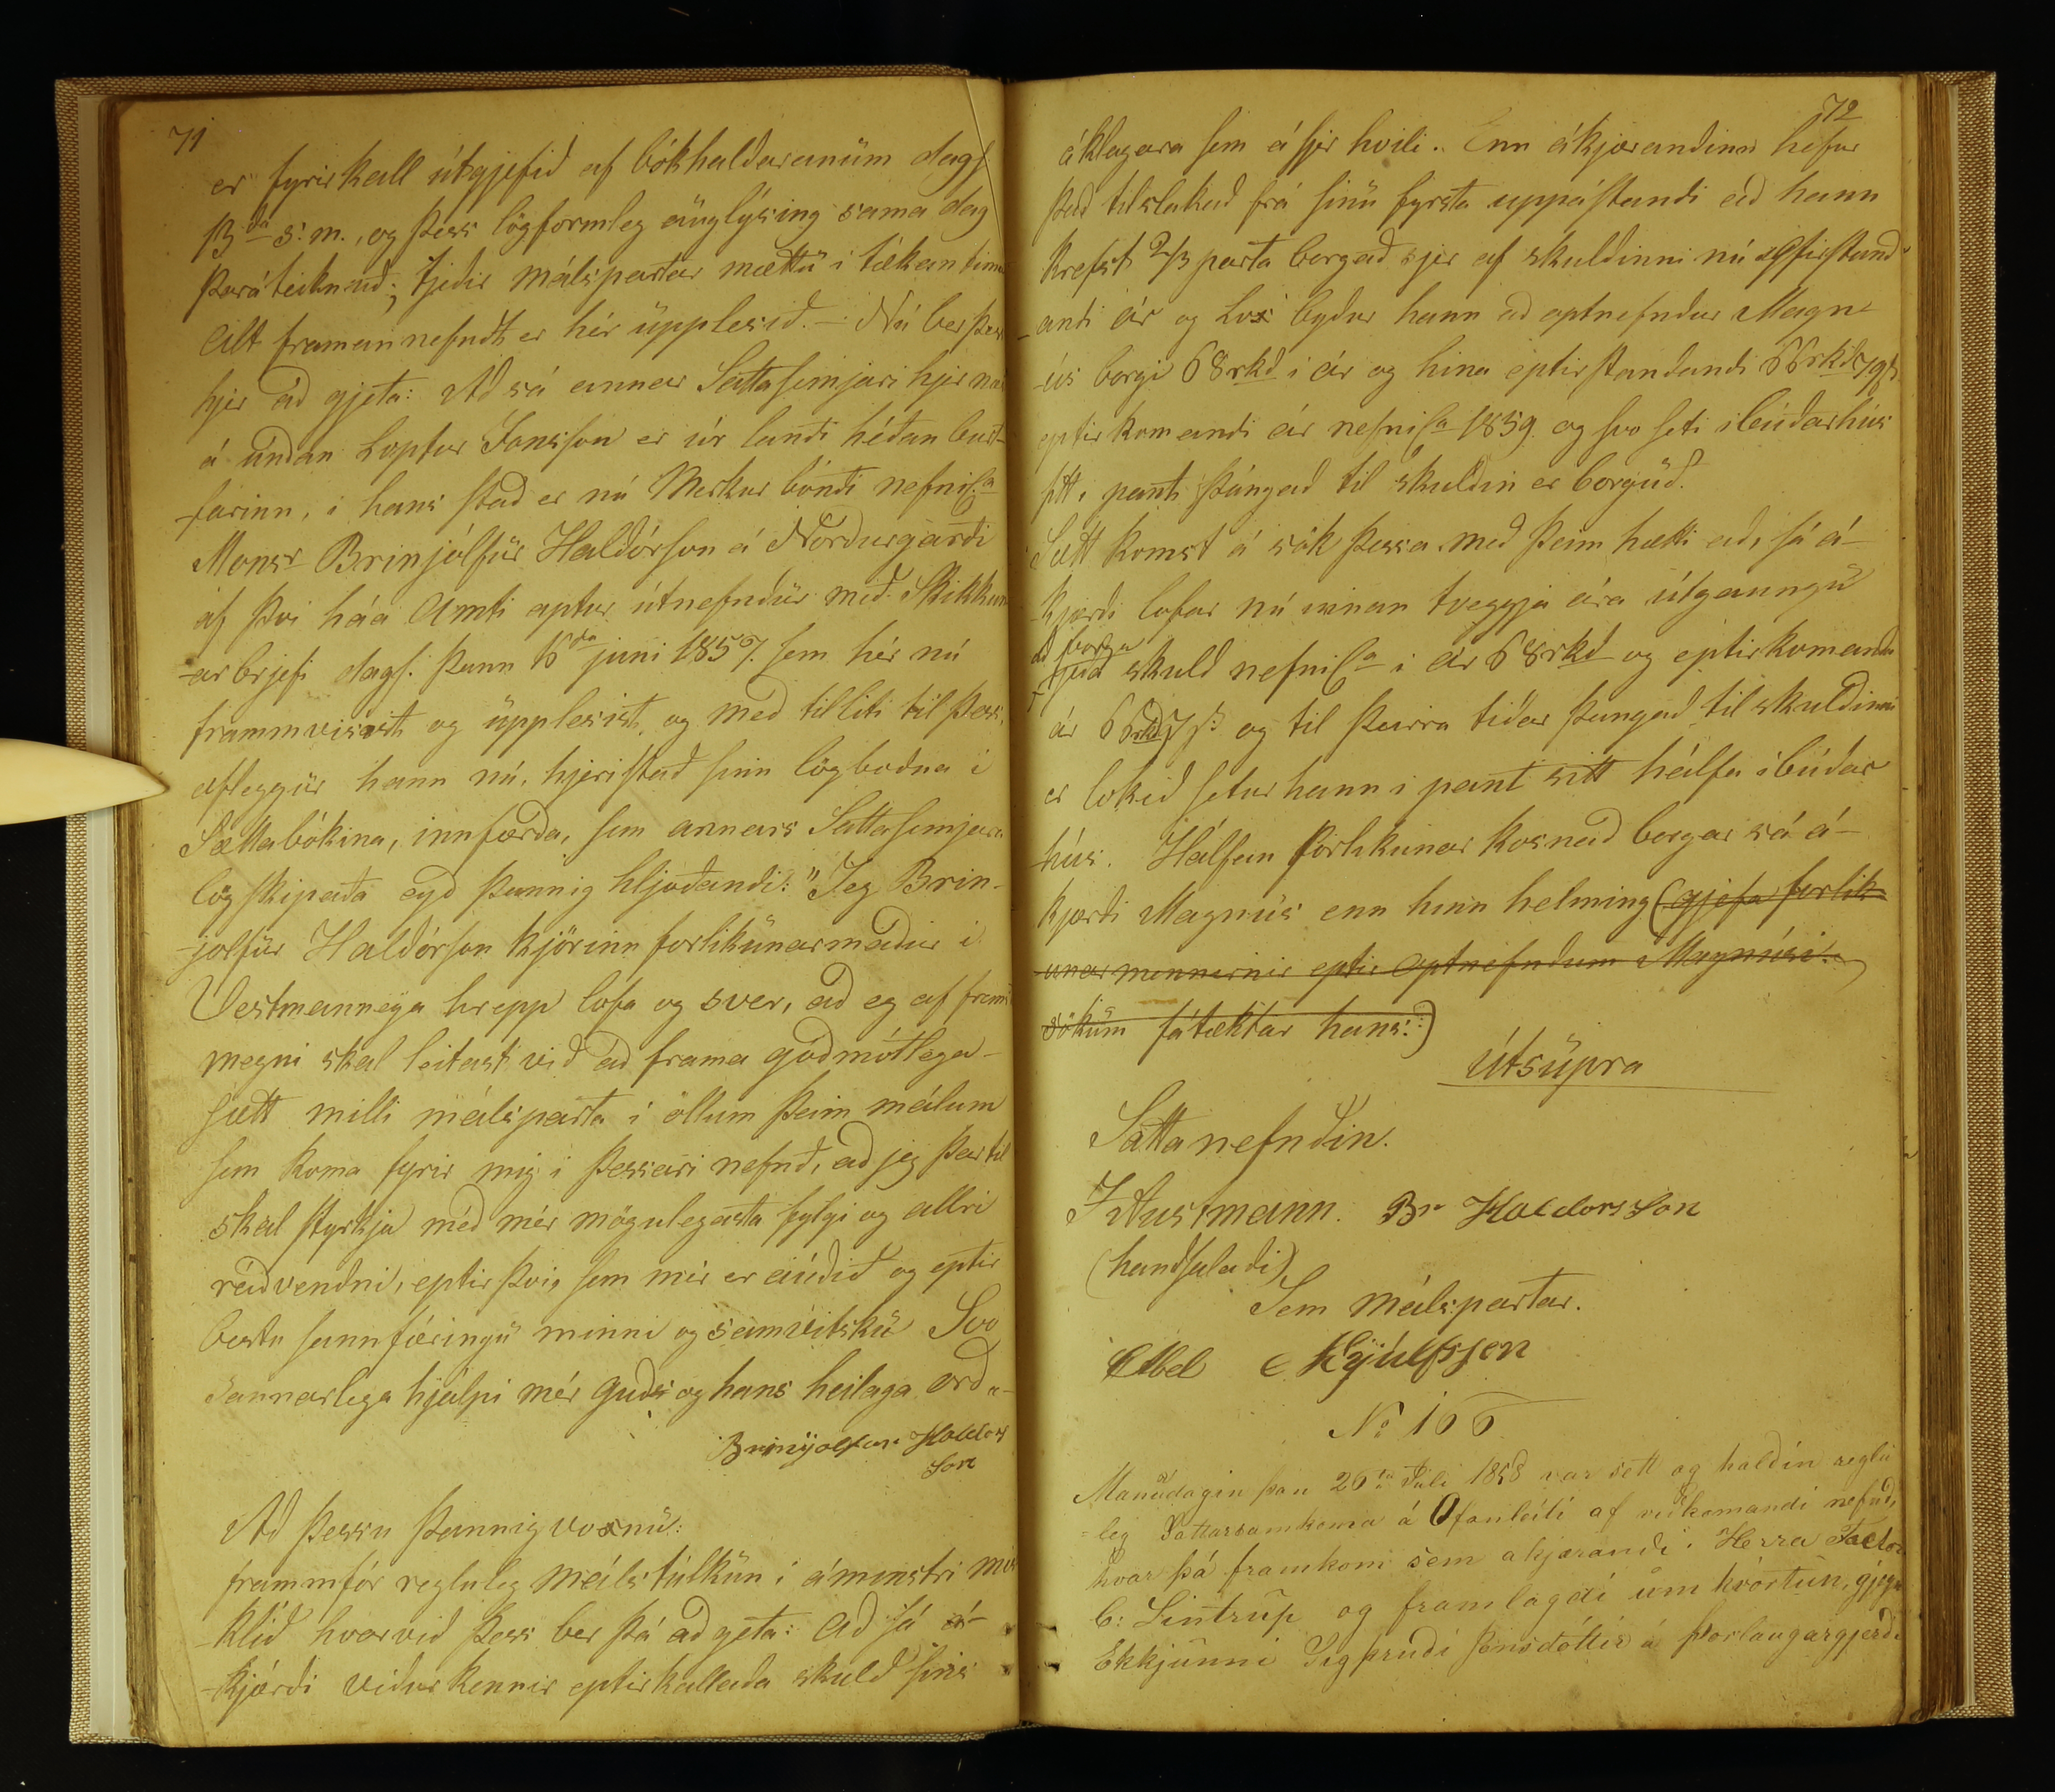 71
er fyrirkall útgjefið af bókhaldaranüm dags
13da s. m., og þess lögformleg äuglýsing sama dag
þaráteiknuð; tjeðir málspartar mættu i tækan tima
Alt framannefndt er hér üpplesið. — Nú ber þess
hjer að gjeta: Að sá annar Sattasemjari hjer næst
á undan Loptur Jonsson er úr landi héðan burt-
-farinn, i hans stað er nú Merkur bóndi nefnil.a
Monsr Brinjólfür Haldórson á Norðurgarði
af þvi háa Amti aptur útnefndür með Skikkun
-arbrjefi dags. þann 16da juni 1857. sem hér nú
frammvisisth og üpplesisth, og með tilliti til þess,
afleggur hann nú, hjeristað sinn lögboðna i
Sættabókina, innfærða, sem annars Sattasemjara
lögskipaða eyð þannig hljoðandi: "Jeg Brin-
-jolfür Haldórson kjörinn forlikünarmaður i
Vestmanneya hrepp lofa og sver, að eg af fremsta
megni skal leitast við að frama góðmótlega-
sætt milli málsparta i öllum þeim málum
sem koma fyrir mig i þessari nefnd, að jeg þartil
skal styrkja með mér mögulegasta fylgi og allri
ráðvendni, eptir þvi, sem mér er aúðið og eptir
bestu sannfæringü minni og samvitskü Svo
sannarlega hjálpi mér guð og hans heilaga orð
Brinyolfur Haldors
son
Að þessu þannig voxnü:
frammfór regluleg málstúlkün i áminstri mis
-klið hvarvið þess ber þá að geta: að sá á-
-kjærði viðurkennir eptirkallaða skuld sins
72
áklagara sem á sjer hvili. Enn ákjærandinn hefur
það tilslakað frá sinü fyrsta uppástandi að hann
krefst 2/3 parta borgað sjer af skuldinni nú yfirstand-
-andi ár og svo byður hann að aptnefndur Magn-
-ús borgi 68rkd i ár og hina eptirstandandi 66rkd 7 sk
eptirkomandi ár nefnil.a 1859. og svo seti ibúðarhús
sitt, panti þángað til skuldin er borguð.
Sætt komst á sök þessa með þeim hætti að, sá á-
-kjærði lofar nú innan tveggja ára útgaungü
að borga
tjeða skuld nefnil.a i ár 68rkd og eptirkomandi
ár 66rkd 7 s: og til þeirra tiðar þangað til skuldinni
er lokið setur hann i pant sitt hálfa ibúðar
-hús. Hálfan forlikunar kosnað borgar sá á-
kjærði Magnús enn hinn helming (gjefa forlik-
unarmennirnir eptir aptnefndum Magnúsi
sökum fátæktar hans:)
Útsüpra
Sattanefndin.
J Austmann. Br Haldorsson
(handsalaði)
Sem málspartar.
Abel Eyjúlfssen
No 166
Manüdagin þan 26ta Juli 1858 var sett og haldin reglu
-leg Sattasamkoma á Ofanleiti af viðkomandi nefnd,
hvar þá framkom sem akjærandi: Herra Factor
C: Sintrup og framlagdi um kvörtun, gjegn
Ekkjunni Sigþrudi Jonsdóttir á Þorlaugargjerdi